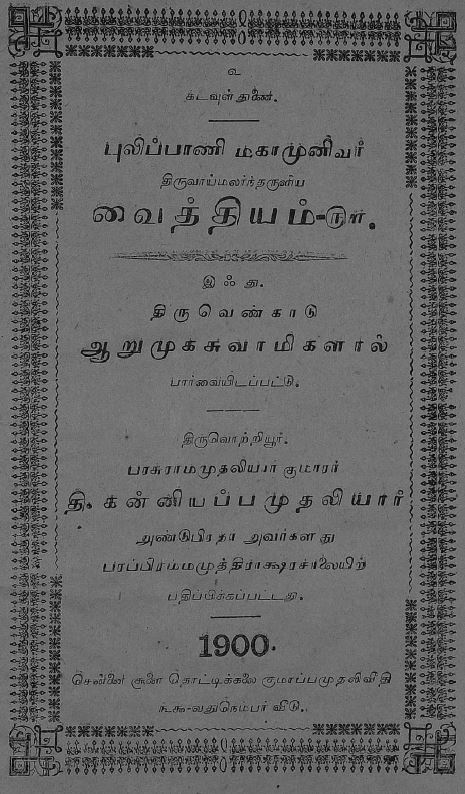 உ
கடவுள் துணை.
புலிப்பாணி மகாமுனிவர்
திருவாய்மலர்ந்தருளிய
வைத்தியம்-௫௱.
இஃது.
திருவெண்காடு
ஆறுமுகசுவாமிகளால்
பார்வையிடப்பட்டு.
திருவொற்றியூர்.
பரசுராமமுதலியார் குமாரர்
தி. கன்னியப்பமுதலியார்
அவர்களது
பரப்பிரம்மமுத்திராக்ஷரசாலையிற்
பதிப்பிக்கப்பட்டது.
1900.
சென்னை சூளை தொட்டிக்கலை குமாரப்பமுதலிவீதி
வதுநெம்பர் வீடு.